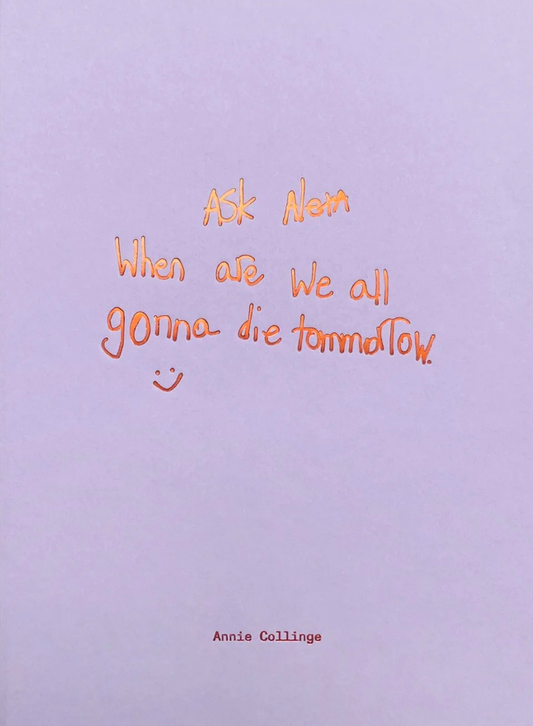 Ask Nora
When are We all
gonna die tommorrow.
Annie Collinge